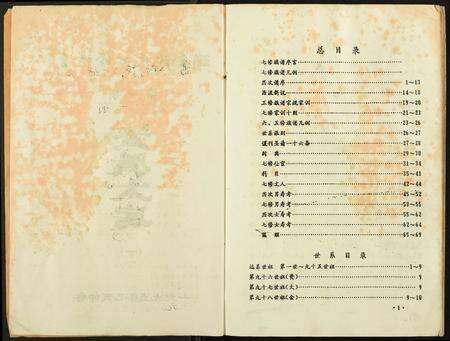 总目录
七修族谱序言
七修族谱凡例
历次谱序 1~13
西流新说 14~18
五修族谱家规家训 19~20
七修家训十则 21~23
六、五修族谱凡例 23~26
世系派别 26~27
谨刊圣谕一十六条 27~28
封典 29~30
七修仕宦 31~34
科目 35~41
七修文人 42~44
历次男寿考 45~52
七修男寿考 53~55
历次女寿考 55~62
七修女寿考 62~64
65~69
世系目录
远系世祖 第一世~九十五世祖 1~9
第九十六世祖(贵) 9
第九十七世祖(大) 9
第九十八世祖(金) 9~10
·1·